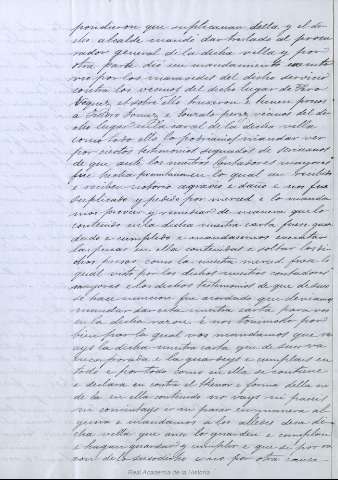 pondieron que suplicauan della y el di-
cho alcalde mandó dar treslado al procu-
rador general de la dicha villa y por
otra parte dió su mandamiento executi-
vo por los maravedis del dicho servicio
contra los vecinos del dicho lugar de Pero
é sobre ello truxeron é tienen presos
á Pedro Gomez é Gonzalo Perez vecinos del di-
cho lugar en la carcel de la dicha villa
como todo ello lo podriamos mandar ver
por ciertos testimonios signados de escrivanos
de que ante los nuestros contadores mayores
fué hecha presentacion en lo qual an recebido
é reciben notorio agravio é daño é nos fué
suplicado y pedido por merced e lo manda-
mos proveer y remediar de manera que lo
contenido en la dicha nuestra carta fuese guar-
dado é cumplido é mandasemos executar
las penas en ella contenidas é soltar los di-
chos presos como la nuestra merced fuese lo
qual visto por los dichos nuestros contadores
mayores é los dichos testimonios de que de suso
se hace mencion fué acordado que deviamos
mandar dar esta nuestra carta para vos
en la dicha razon. É nos tovimoslo por
bien por la qual vos mandamos que ve-
ays la dicha nuestra carta que de suso va
encorporada é la guardeys é cumplais en
todo é por todo como en ella se contiene
é declara en contra el thenor é forma della ni
de lo en ella contenido no vays ni paseis
ni consintays ir ni pasar en manera al-
guna é mandamos á los alcaldes desa di-
cha villa que ansi lo guarden é cumplan
é hagan guardar y cumplir é que si por ra-
zon de lo susodicho uno por otra causa
Real Academia de la Historia